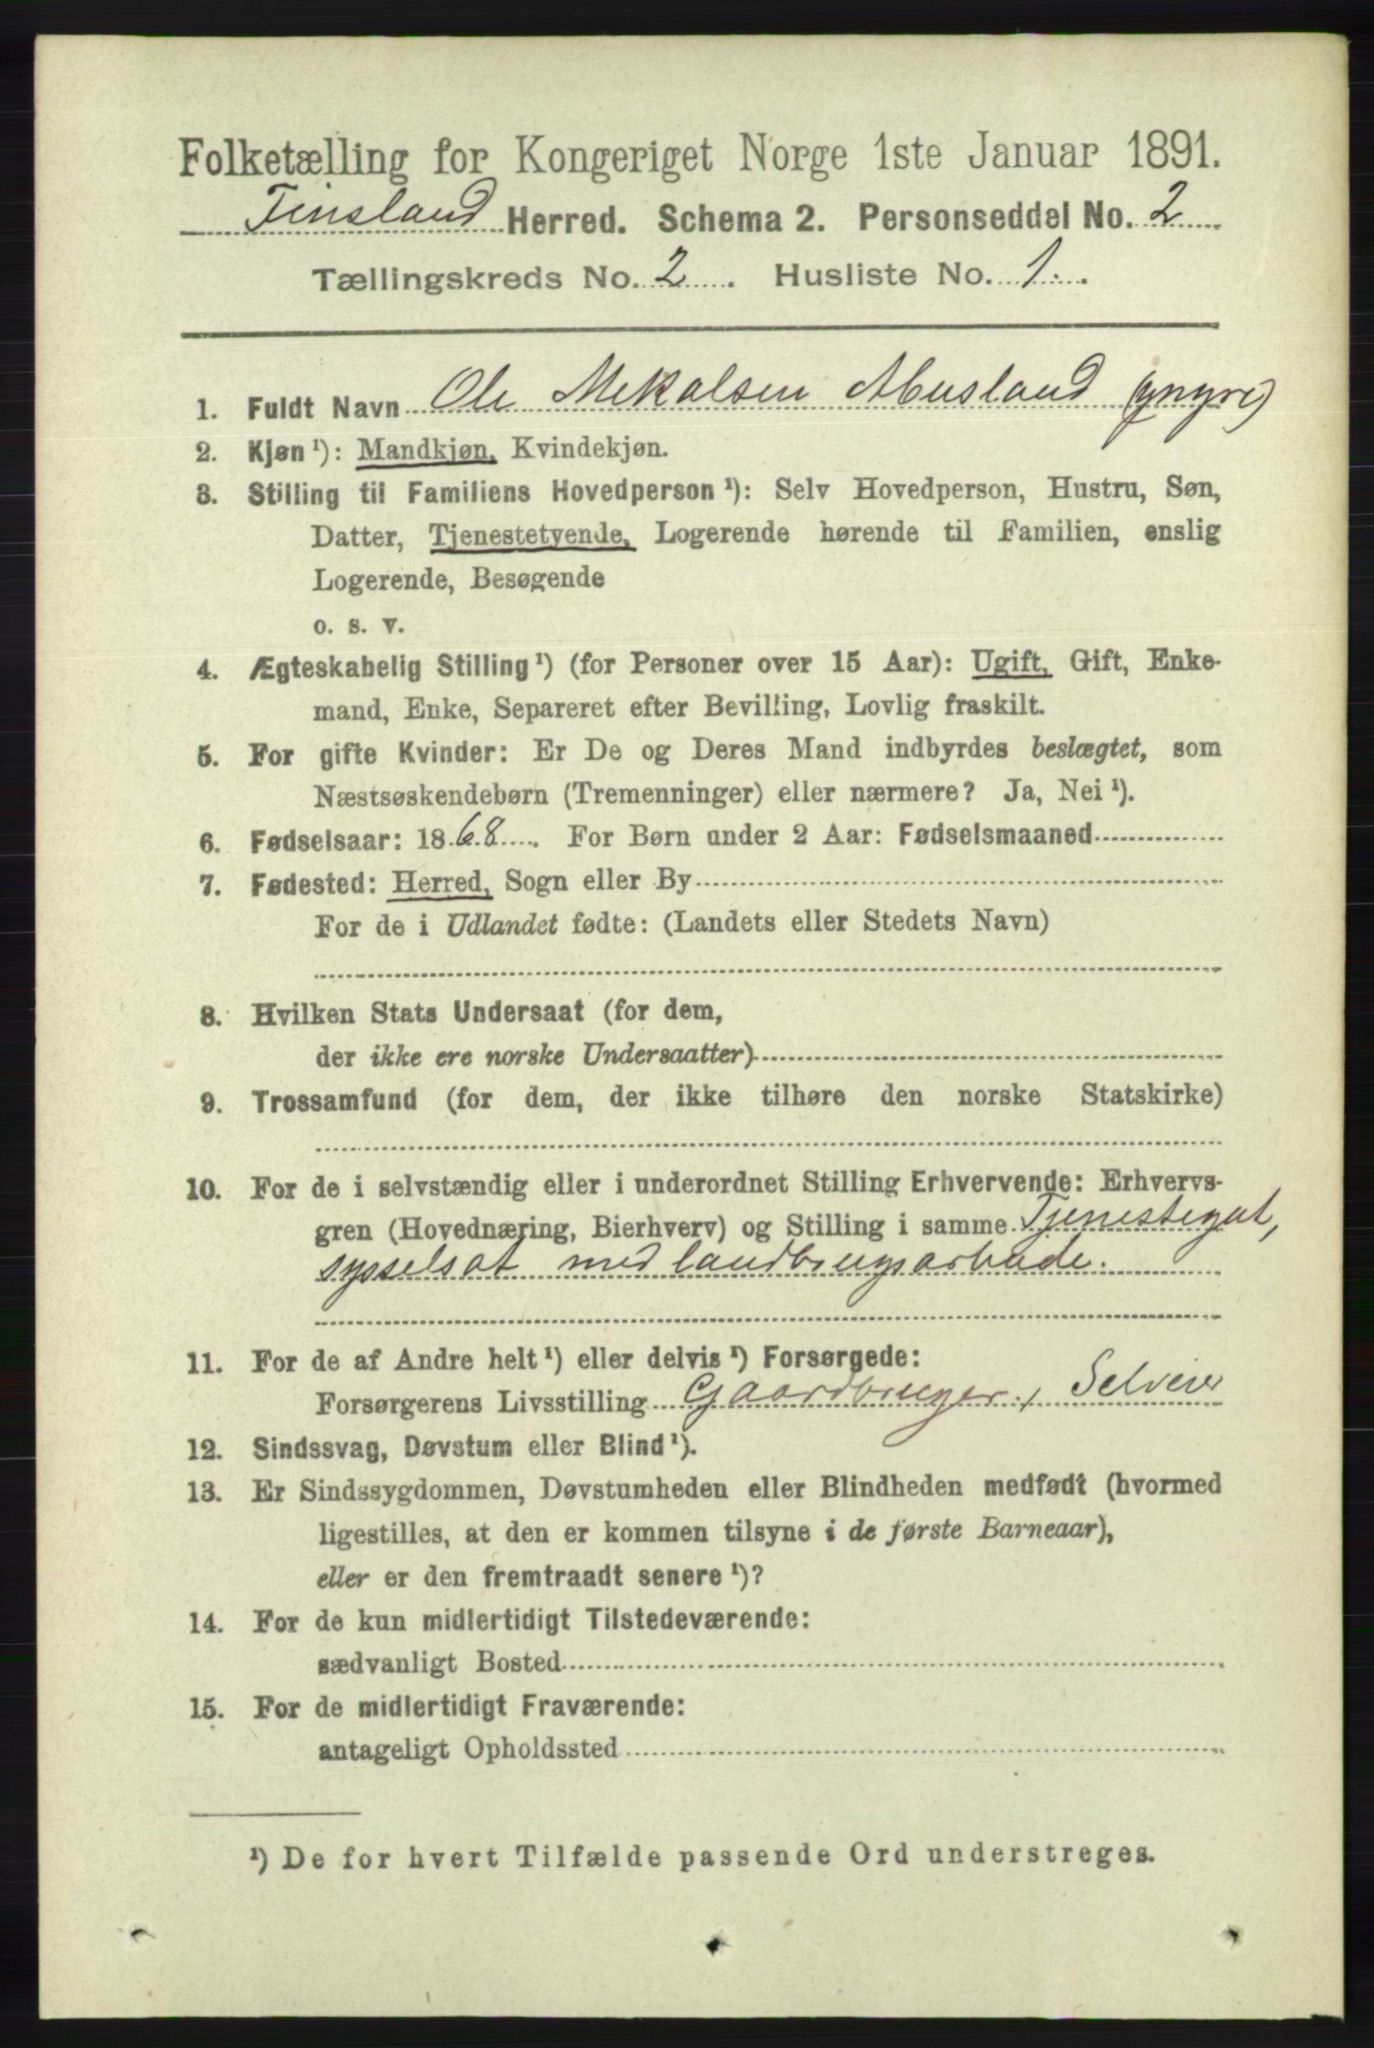 Folketælling for Kongeriget Norge 1ste Januar 1891.
Finsland Herred. Schema 2. Personseddel No. 2
Tællingskreds No. 2. Husliste No. 1.
1. Fuldt Navn Ole Mekalsen Abusland (yngre)
2. Kjøn ¹): Mandkjøn, Kvindekjøn.
3. Stilling til Familiens Hovedperson ¹): Selv Hovedperson, Hustru, Søn,
Datter, Tjenestetyende, Logerende hørende til Familien, enslig
Logerende, Besøgende
o. s. v.
4. Ægteskabelig Stilling ¹) (for Personer over 15 Aar): Ugift, Gift, Enke-
mand, Enke, Separeret efter Bevilling, Lovlig fraskilt.
5. For gifte Kvinder: Er De og Deres Mand indbyrdes beslægtet, som
Næstsøskendebørn (Tremenninger) eller nærmere? Ja, Nei ¹).
6. Fødselsaar: 1868. For Børn under 2 Aar: Fødselsmaaned
7. Fødested: Herred, Sogn eller By
For de i Udlandet fødte: (Landets eller Stedets Navn)
8. Hvilken Stats Undersaat (for dem,
der ikke ere norske Undersaatter)
9. Trossamfund (for dem, der ikke tilhøre den norske Statskirke)
10. For de i selvstændig eller i underordnet Stilling Erhvervende: Erhvervs-
gren (Hovednæring, Bierhverv) og Stilling i samme Tjenestegut,
sysselsat med landbrugsarbeide.
11. For de af Andre helt ¹) eller delvis ¹) Forsørgede:
Forsørgerens Livsstilling Gaardbruger, Selveier
12. Sindssvag, Døvstum eller Blind ¹).
13. Er Sindssygdommen, Døvstumheden eller Blindheden medfødt (hvormed
ligestilles, at den er kommen tilsyne i de første Barneaar),
eller er den fremtraadt senere ¹)?
14. For de kun midlertidigt Tilstedeværende:
sædvanligt Bosted
15. For de midlertidigt Fraværende:
antageligt Opholdssted
¹) De for hvert Tilfælde passende Ord understreges.